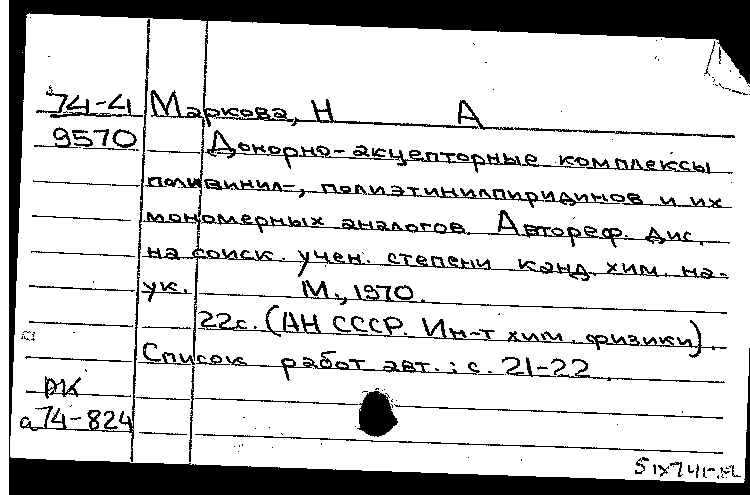 74-4 Маркова, Н А
9570 Донорно-акцепторные комплексы
поливинил-, полиэтинилпиридинов и их
мономерных аналогов. Автореф. дис.
на соиск. учен. степени канд. хим. на-
ук. М., 1970.
22с. (АН СССР. Ин-т хим. физики).
Список работ авт.: с. 21-22.
РК
а74-824